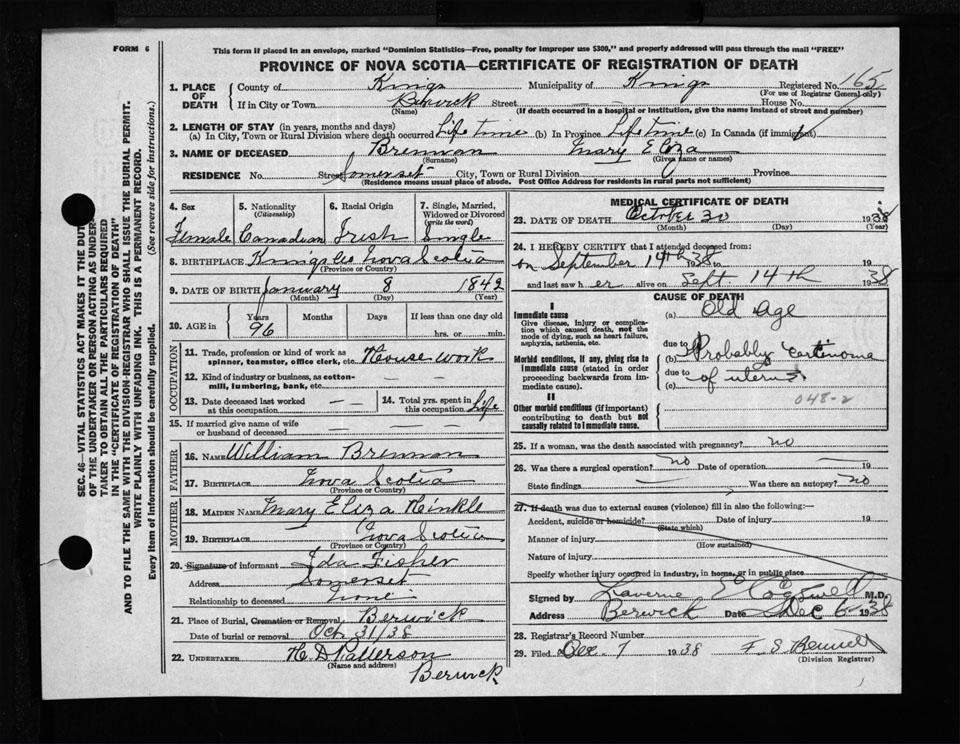 FORM 6
This form if placed in an envelope, marked "Dominion Statistics—Free, penalty for improper use $300," and properly addressed will pass through the mail "FREE"
PROVINCE OF NOVA SCOTIA—CERTIFICATE OF REGISTRATION OF DEATH
SEC. 46—VITAL STATISTICS ACT MAKES IT THE DUTY
OF THE UNDERTAKER OR PERSON ACTING AS UNDER-
TAKER TO OBTAIN ALL THE PARTICULARS REQUIRED
IN THE "CERTIFICATE OF REGISTRATION OF DEATH"
AND TO FILE THE SAME WITH THE DIVISION-REGISTRAR WHO SHALL ISSUE THE BURIAL PERMIT.
WRITE PLAINLY WITH UNFADING INK. THIS IS A PERMANENT RECORD.
Every item of Information should be carefully supplied. (See reverse side for instructions.)
1. PLACE OF DEATH County of Kings Municipality of Kings Registered No. 165
(For use of Registrar General only)
If in City or Town Berwick Street — — House No.
(Name) (If death occurred in a hospital or institution, give the name instead of street and number)
2. LENGTH OF STAY (in years, months and days)
(a) In City, Town or Rural Division where death occurred Life time (b) In Province Lifetime (c) In Canada (if immigrant)
3. NAME OF DECEASED Brennan Mary Eliza
(Surname) (Given name or names)
RESIDENCE No. Street Somerset City, Town or Rural Division Province
(Residence means usual place of abode. Post Office Address for residents in rural parts not sufficient)
4. Sex 5. Nationality (Citizenship) 6. Racial Origin 7. Single, Married, Widowed or Divorced (write the word)
Female Canadian Irish Single
8. BIRTHPLACE Kings Co Nova Scotia
(Province or Country)
9. DATE OF BIRTH January 8 1842
(Month) (Day) (Year)
10. AGE in Years Months Days If less than one day old
96 hrs. or min.
OCCUPATION
11. Trade, profession or kind of work as spinner, teamster, office clerk, etc. House work
12. Kind of industry or business, as cotton-mill, lumbering, bank, etc. — — —
13. Date deceased last worked at this occupation — — 14. Total yrs. spent in this occupation Life
15. If married give name of wife or husband of deceased — —
FATHER
16. NAME William Brennan
17. BIRTHPLACE Nova Scotia
(Province or Country)
MOTHER
18. MAIDEN NAME Mary Eliza Hinkle
19. BIRTHPLACE Nova Scotia
(Province or Country)
20. Signature of informant Ida Fisher
Address Somerset
Relationship to deceased none
21. Place of Burial, Cremation or Removal Berwick
Date of burial or removal Oct 31/38
22. UNDERTAKER H. D Patterson
(Name and address)
Berwick
MEDICAL CERTIFICATE OF DEATH
23. DATE OF DEATH October 30 1938
(Month) (Day) (Year)
24. I HEREBY CERTIFY that I attended deceased from:
on September 14th 38 to 19
and last saw h er alive on Sept. 14th 1938
CAUSE OF DEATH
I
Immediate cause
Give disease, injury or complication which caused death, not the mode of dying, such as heart failure, asphyxia, asthenia, etc.
(a) Old Age
due to
Morbid conditions, if any, giving rise to immediate cause (stated in order proceeding backwards from immediate cause).
(b) Probably carcinoma
due to
(c) of uterus
048-2
II
Other morbid conditions (if important) contributing to death but not causally related to immediate cause.
25. If a woman, was the death associated with pregnancy? no
26. Was there a surgical operation? no Date of operation 19
State findings Was there an autopsy? no
27. If death was due to external causes (violence) fill in also the following:—
Accident, suicide or homicide? Date of injury 19
(State which)
Manner of injury
(How sustained)
Nature of injury
Specify whether injury occurred in industry, in home, or in public place
Signed by Laverne E Cogswell M.D.
Address Berwick Date Dec 6 1938
28. Registrar's Record Number
29. Filed Dec. 7 1938 F. S. Bennett
(Division Registrar)